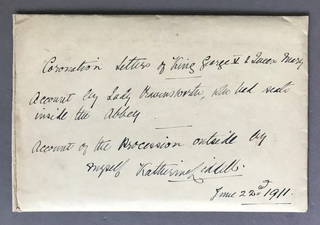 Coronation Letters of King George V & Queen Mary
Account by Lady Ravensworth, who had seats
inside the Abbey
Account of the Procession outside by
myself Katherine Liddell.
June 22nd 1911.